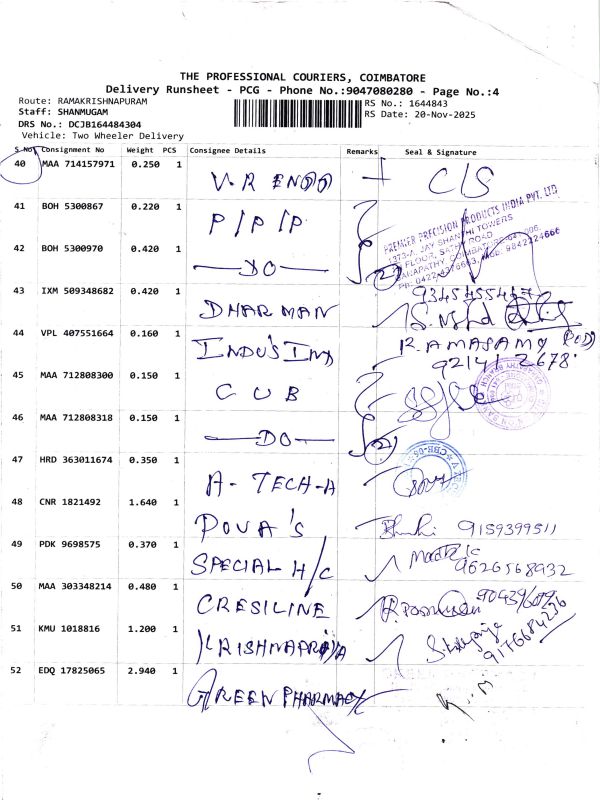 THE PROFESSIONAL COURIERS, COIMBATORE
Delivery Runsheet - PCG - Phone No.:9047080280 - Page No.:4
Route: RAMAKRISHNAPURAM
Staff: SHANMUGAM
DRS No.: DCJB164484304
Vehicle: Two Wheeler Delivery
RS No.: 1644843
RS Date: 20-Nov-2025
S No Consignment No Weight PCS Consignee Details Remarks Seal & Signature
40 MAA 714157971 0.250 1 V.R ENDO C/S
41 BOH 5300867 0.220 1 P/P/P
PREMIER PRECISION PRODUCTS INDIA PVT. LTD
42 BOH 5300970 0.420 1 —DO— 2
43 IXM 509348682 0.420 1 DHARMAN
44 VPL 407551664 0.160 1 INDUS IND RAMASAMY
45 MAA 712808300 0.150 1 CUB
46 MAA 712808318 0.150 1 —DO— 2
47 HRD 363011674 0.350 1 A-TECH-A
48 CNR 1821492 1.640 1 POVA'S 9159399511
49 PDK 9698575 0.370 1 SPECIAL H/C 9626568932
50 MAA 303348214 0.480 1 CRESILINE
51 KMU 1018816 1.200 1 KRISHNAPRIYA 9176684236
52 EDQ 17825065 2.940 1 GREEN PHARMACY